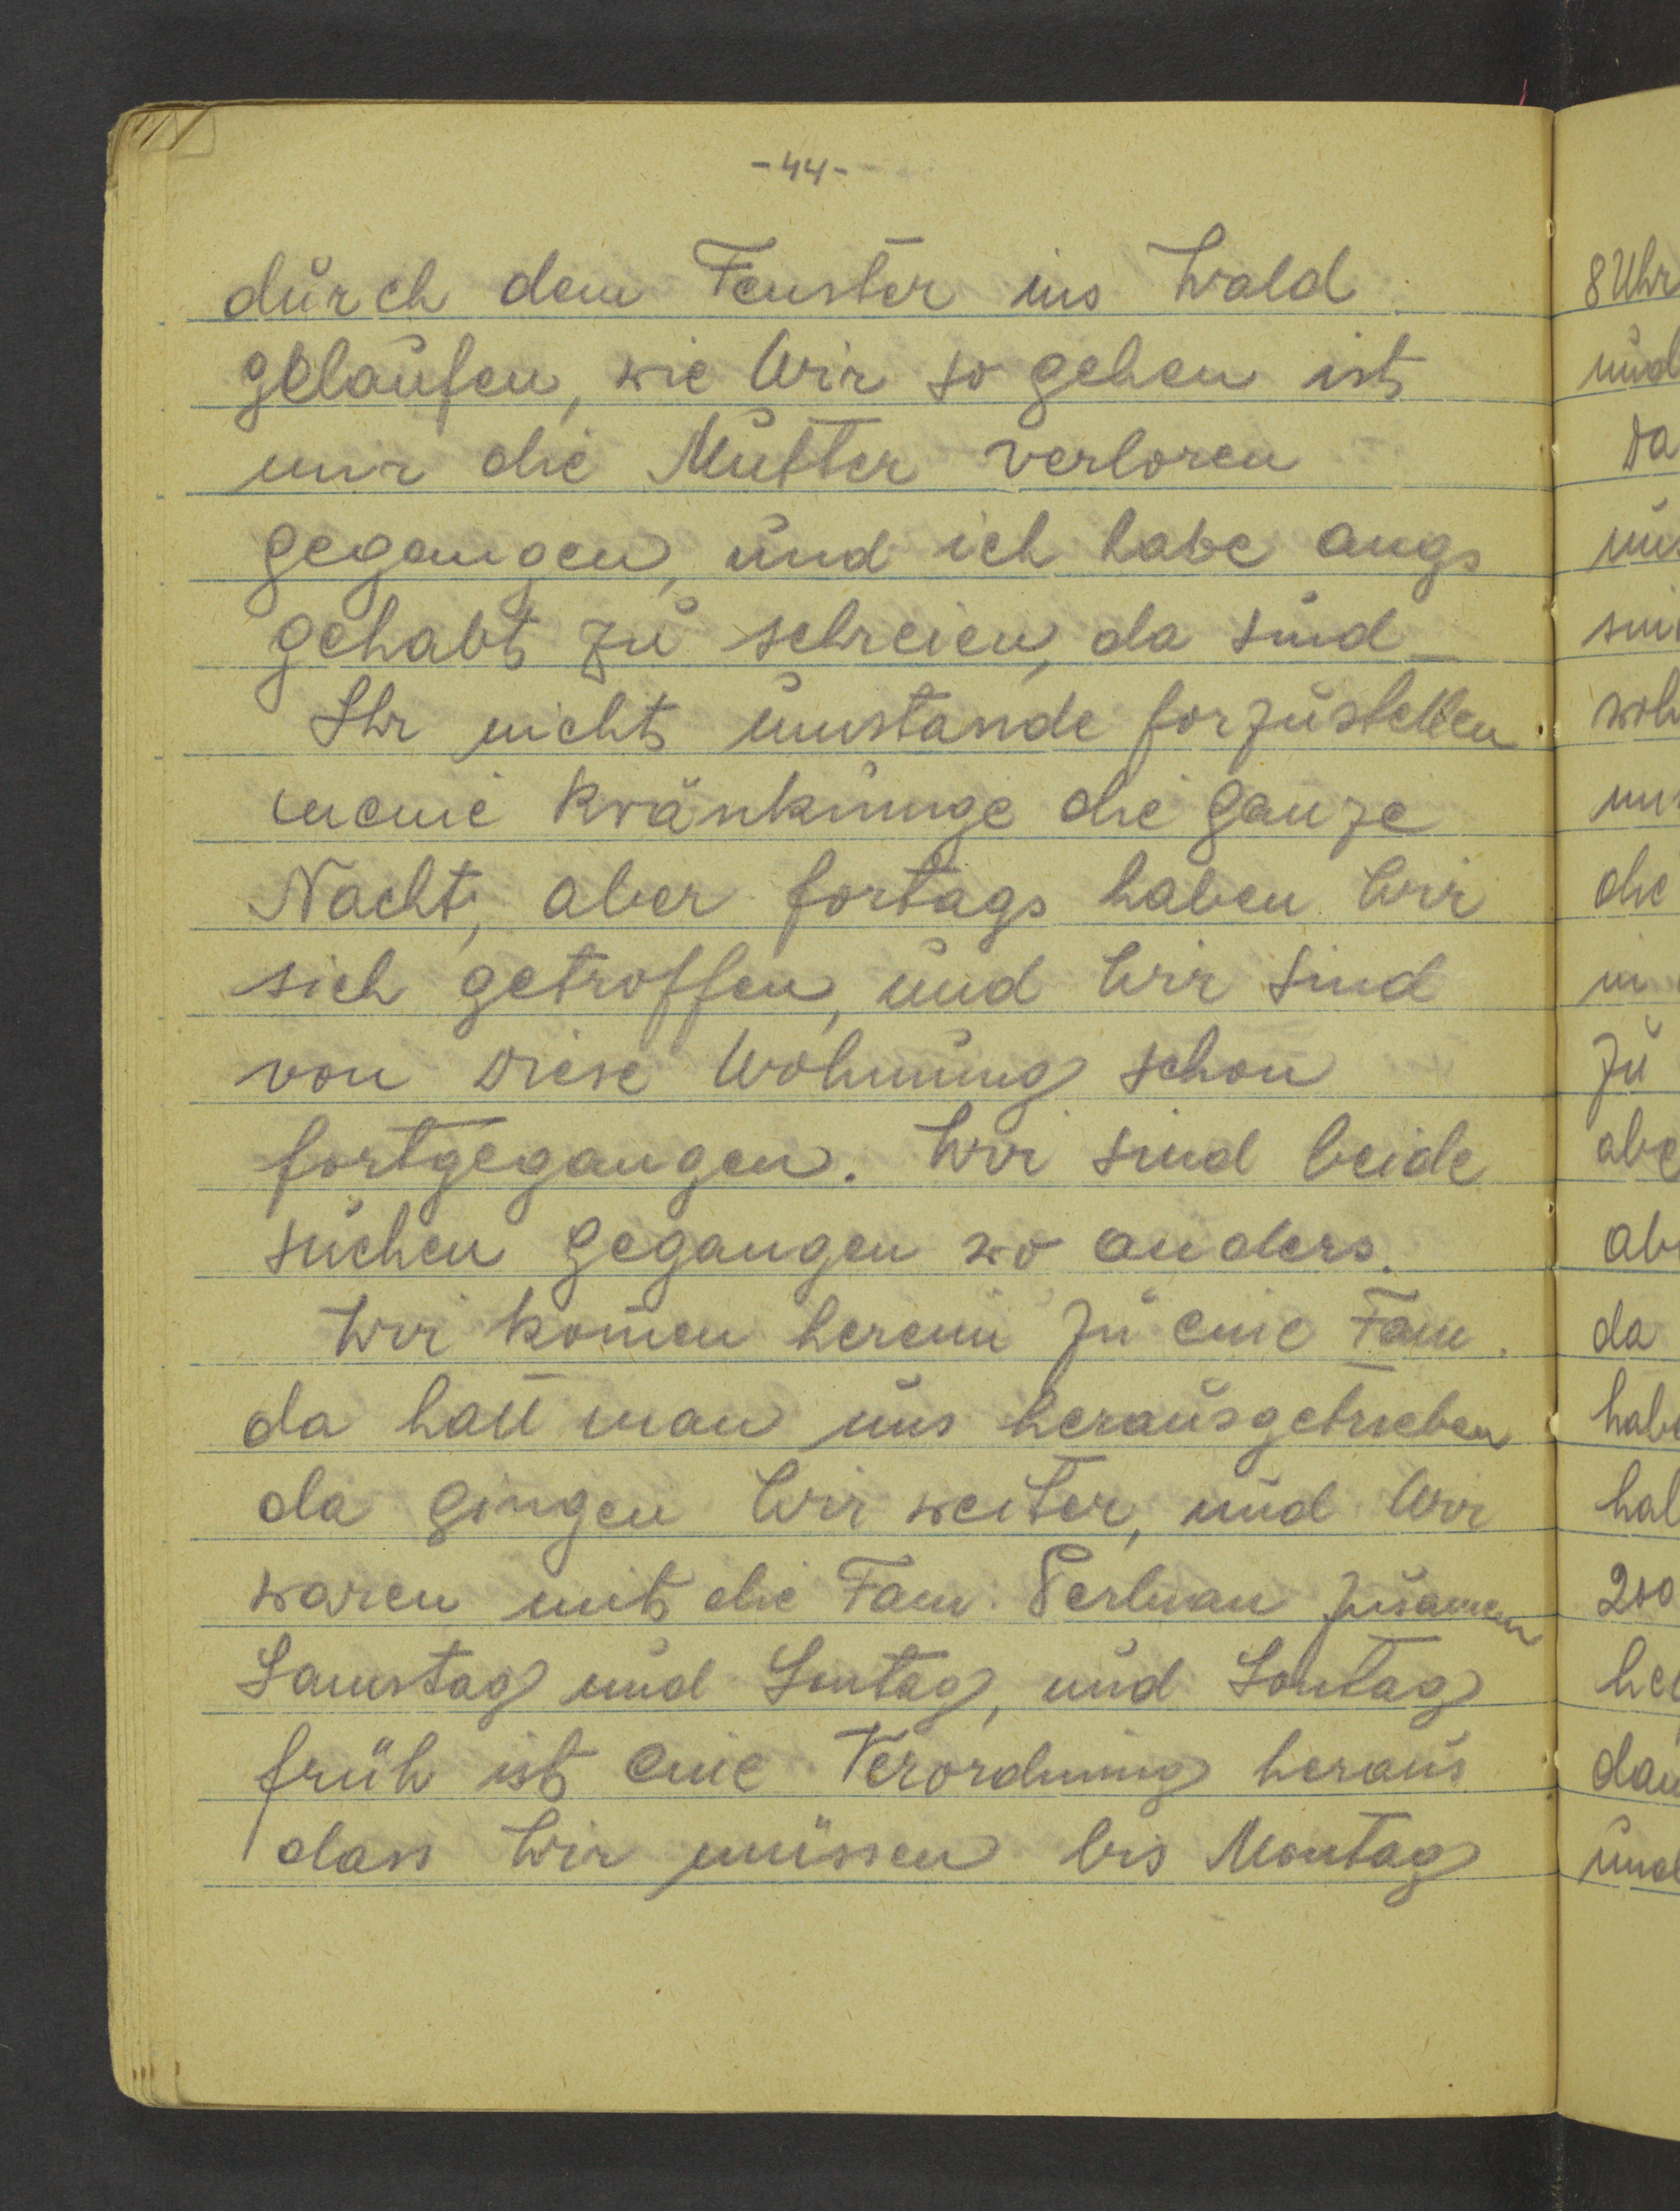 -44-
durch dem Fenster ins Wald
gelaufen, wie Wir so gehen ist
mir die Mutter verloren
gegangen, und ich habe angs
gehabt zu schreien, da sind
Ihr nicht umstande forzustellen
meine Kränkunge die ganze
Nacht, aber fortags haben Wir
sich getroffen, und Wir sind
von diese Wohnung schon
fortgegangen. Wir sind beide
suchen gegangen wo anders.
Wir komen herein zu eine Fam.
da hatt man uns herausgetrieben
da gingen Wir weiter, und Wir
waren mit die Fam. Perlman zusamen
Samstag und Sontag, und Sontag
früh ist eine Verordnung heraus
dass Wir müssen bis Montag
8 Uhr
und
da
zu
da
200